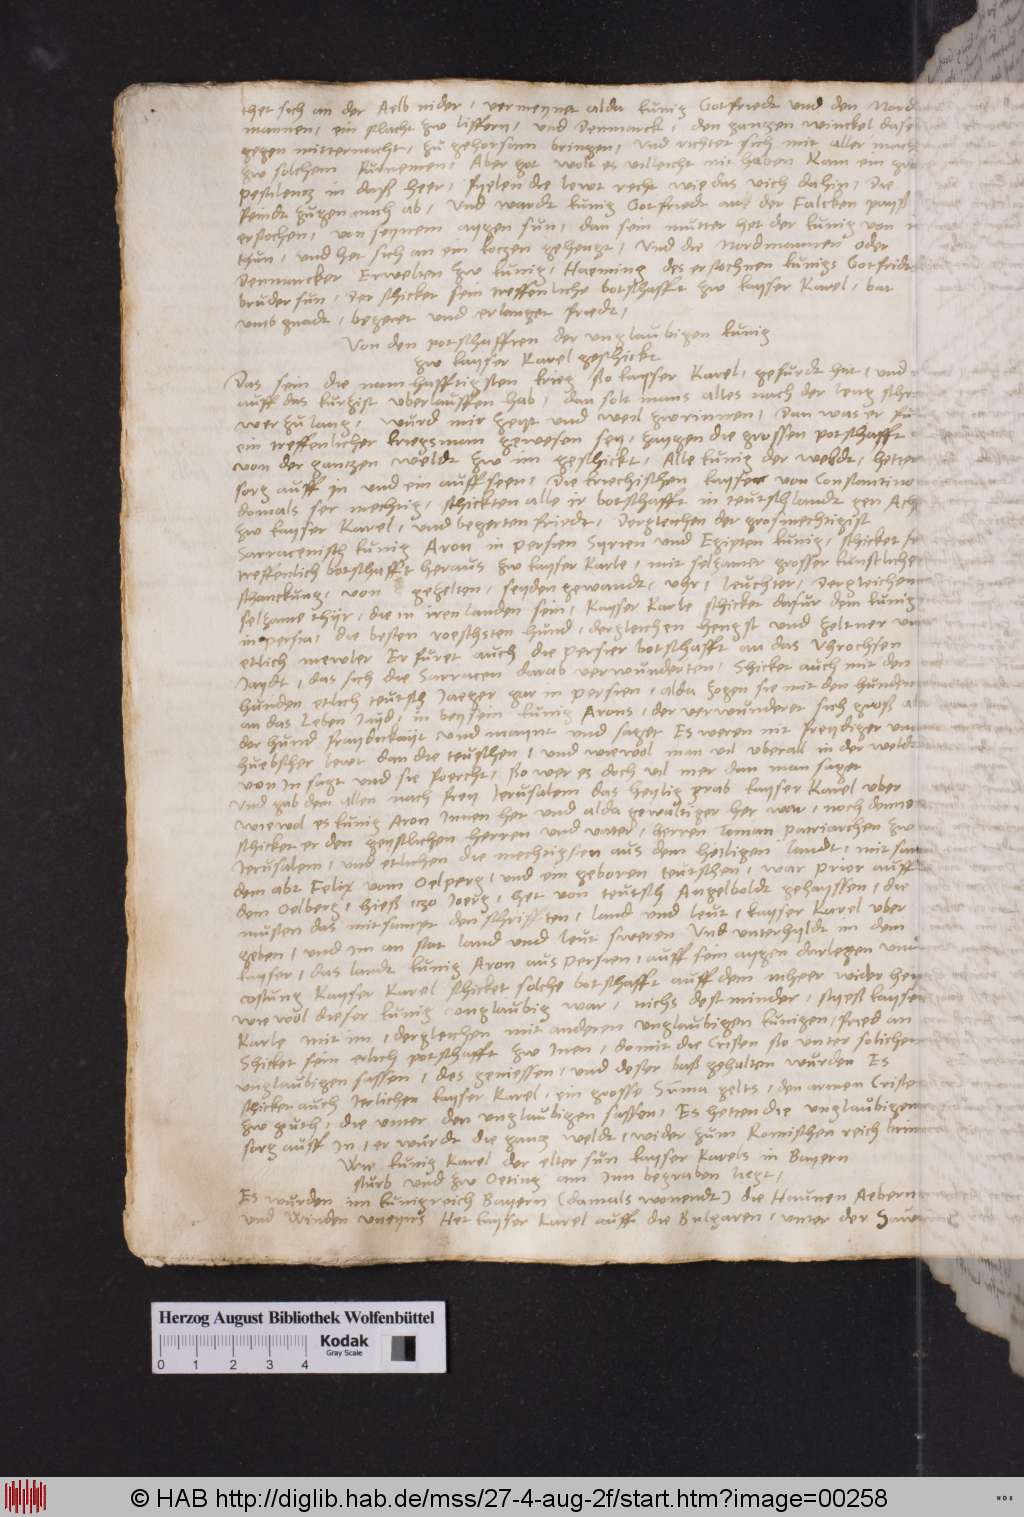 thet sich an der Aelb nider, vermeynet alda kunig Gotfriedt und den Nord
mannen, ein slacht zw liffern, und Denmarck, den gantzen winckel dase
gegen mitternacht, zu gehorsam bringen, und richtet sich mit aller mach
zw solchem furnemen, Aber got wolt es villeicht nit haben kam ein gro
pestilentz in daß heer, fyelen die lewt recht wie das vich dahin, Die
feindt zugen auch ab, Und wardt kunig Gotfriedt auf der Falcken payß
erstochen, von seynem aygen sun, dan sein mutter het der kunig von
thun, und het sich an ein kotzen gehengt, Und die Nordmannen oder
Denmarcker Erwelten zw kunig, Haeming des erstochnen kunigs Gotfridt
bruder sun, Der schicket sein treffenliche botschafft zw kayser Karel, bat
umb gnadt, begeret und erlanget friedt,
Von den potschafften der unglaubigen kunig
zw kayser Karel geschickt
Das sein die nomhafftigsten krieg so kayser Karel, gefurdt hat, und
auff das kurtzist uberlauffen hab, dan solt mans alles nach der leng schr
wer zu lang, wurd mir zeyt und weil zwrinnen, Dan was er fur
ein treffenlicher kriegsman gewesen sey, zaygen die grossen potschafft
von der gantzen weldt zw im geschickt, Alle kunig der weldt, hetten
sorg auff in und ein auff seen, Die kriechischen kayser von Constantino
domals ser mechtig, schickten alle ir botschafft in teutschlandt gen Ach
zw kayser Karel, und begerten friedt, Dergleichen der grosmechtigist
Sarracenisch kunig Aron in persien Syrien und Egipten kunig, schicket s
treffenlich botschafft heraus zw kayser Karle, mit seltzamer grosser kunstliche
schanckung, von gezelten, seyden gewandt, uhr, leuchter, Dergleichen
seltzame thyr, die in iren landen sein, Kayser Karle schicket dafur dem kunig
in persia, die besten roeschsten hund, dergleichen hengst und zeltner un
etlich mewler Er furet auch die persier botschafft an das Uhrochsen
Jaydt, das sich die Sarracen darab verwunderten, Schicket auch mit den
hunden etlich teutsch Jaeger gar in persien, alda zogen sie mit den hunden
an das Leben Jayd, in beysein kunig Arons, der verwunderet sich groß
der hund fraydickayt und maynt und saget Es weren nit freydiger und
huebscher lewt dan die teutschen, und wiewol man vil uberall in der weldt
von In sagt und sie foercht, so wer es doch vil mer dan man saget
Und gab dem allen nach frey Jerusalem das heylig grab kayser Karel uber
wiewol es kunig Aron Innen het und alda gewaltiger her war, noch denno
schicket er den geystlichen herren und vater, herren Toman patriarchen zw
Jerusalem, und etlichen die mechtigsten aus dem heiligen landt, mit sam
dem abt Felix vom Oelperg, und ein geboren teutschen, war prior auff
dem Oelberg, hieß itzo Joerg, het von teutsch Angelboldt gehayssen, die
musten das mitsampt den schrifften, land und leut, kayser Karel uber
geben, und im an stat land und leut sweren Und unterhyldt in dem
kayser, das landt kunig Aron aus Persien, auff sein aygen darlegen und
costung Kayser Karel schicket solche botschafft auff dem mheer wider hey
wie wol dieser kunig unglaubig war, nichs dest minder, styeß kayser
Karle mit im, dergleichen mit anderen unglaubigen kunigen, fried an
Schicket sein erlich potschafft zw Inen, domit die Cristen so unter solichen
unglaubigen sassen, des geniessen, und dester baß gehalten wurden Es
schicket auch Jerlichen kayser Karel, ein grosse Suma gelts, den armen Criste
zw gueth, die unter den unglaubigen sassen, Es hetten die unglaubigen
sorg auff In, er wurdt die gantz weldt, wider zum Romischen reich brin
Wie kunig Karel der elter sun kayser Karels in Bayern
sturb und zw Oeting am Inn begraben liegt,
Es wurden im kunigreich Bayern (damals wonendt) die Haunen Aebern
und Winden uneyns Het kayser Karel auff die Bulgaren, unter der Saw
Herzog August Bibliothek Wolfenbüttel
Kodak
Gray Scale
0 1 2 3 4
© HAB http://diglib.hab.de/mss/27-4-aug-2f/start.htm?image=00258